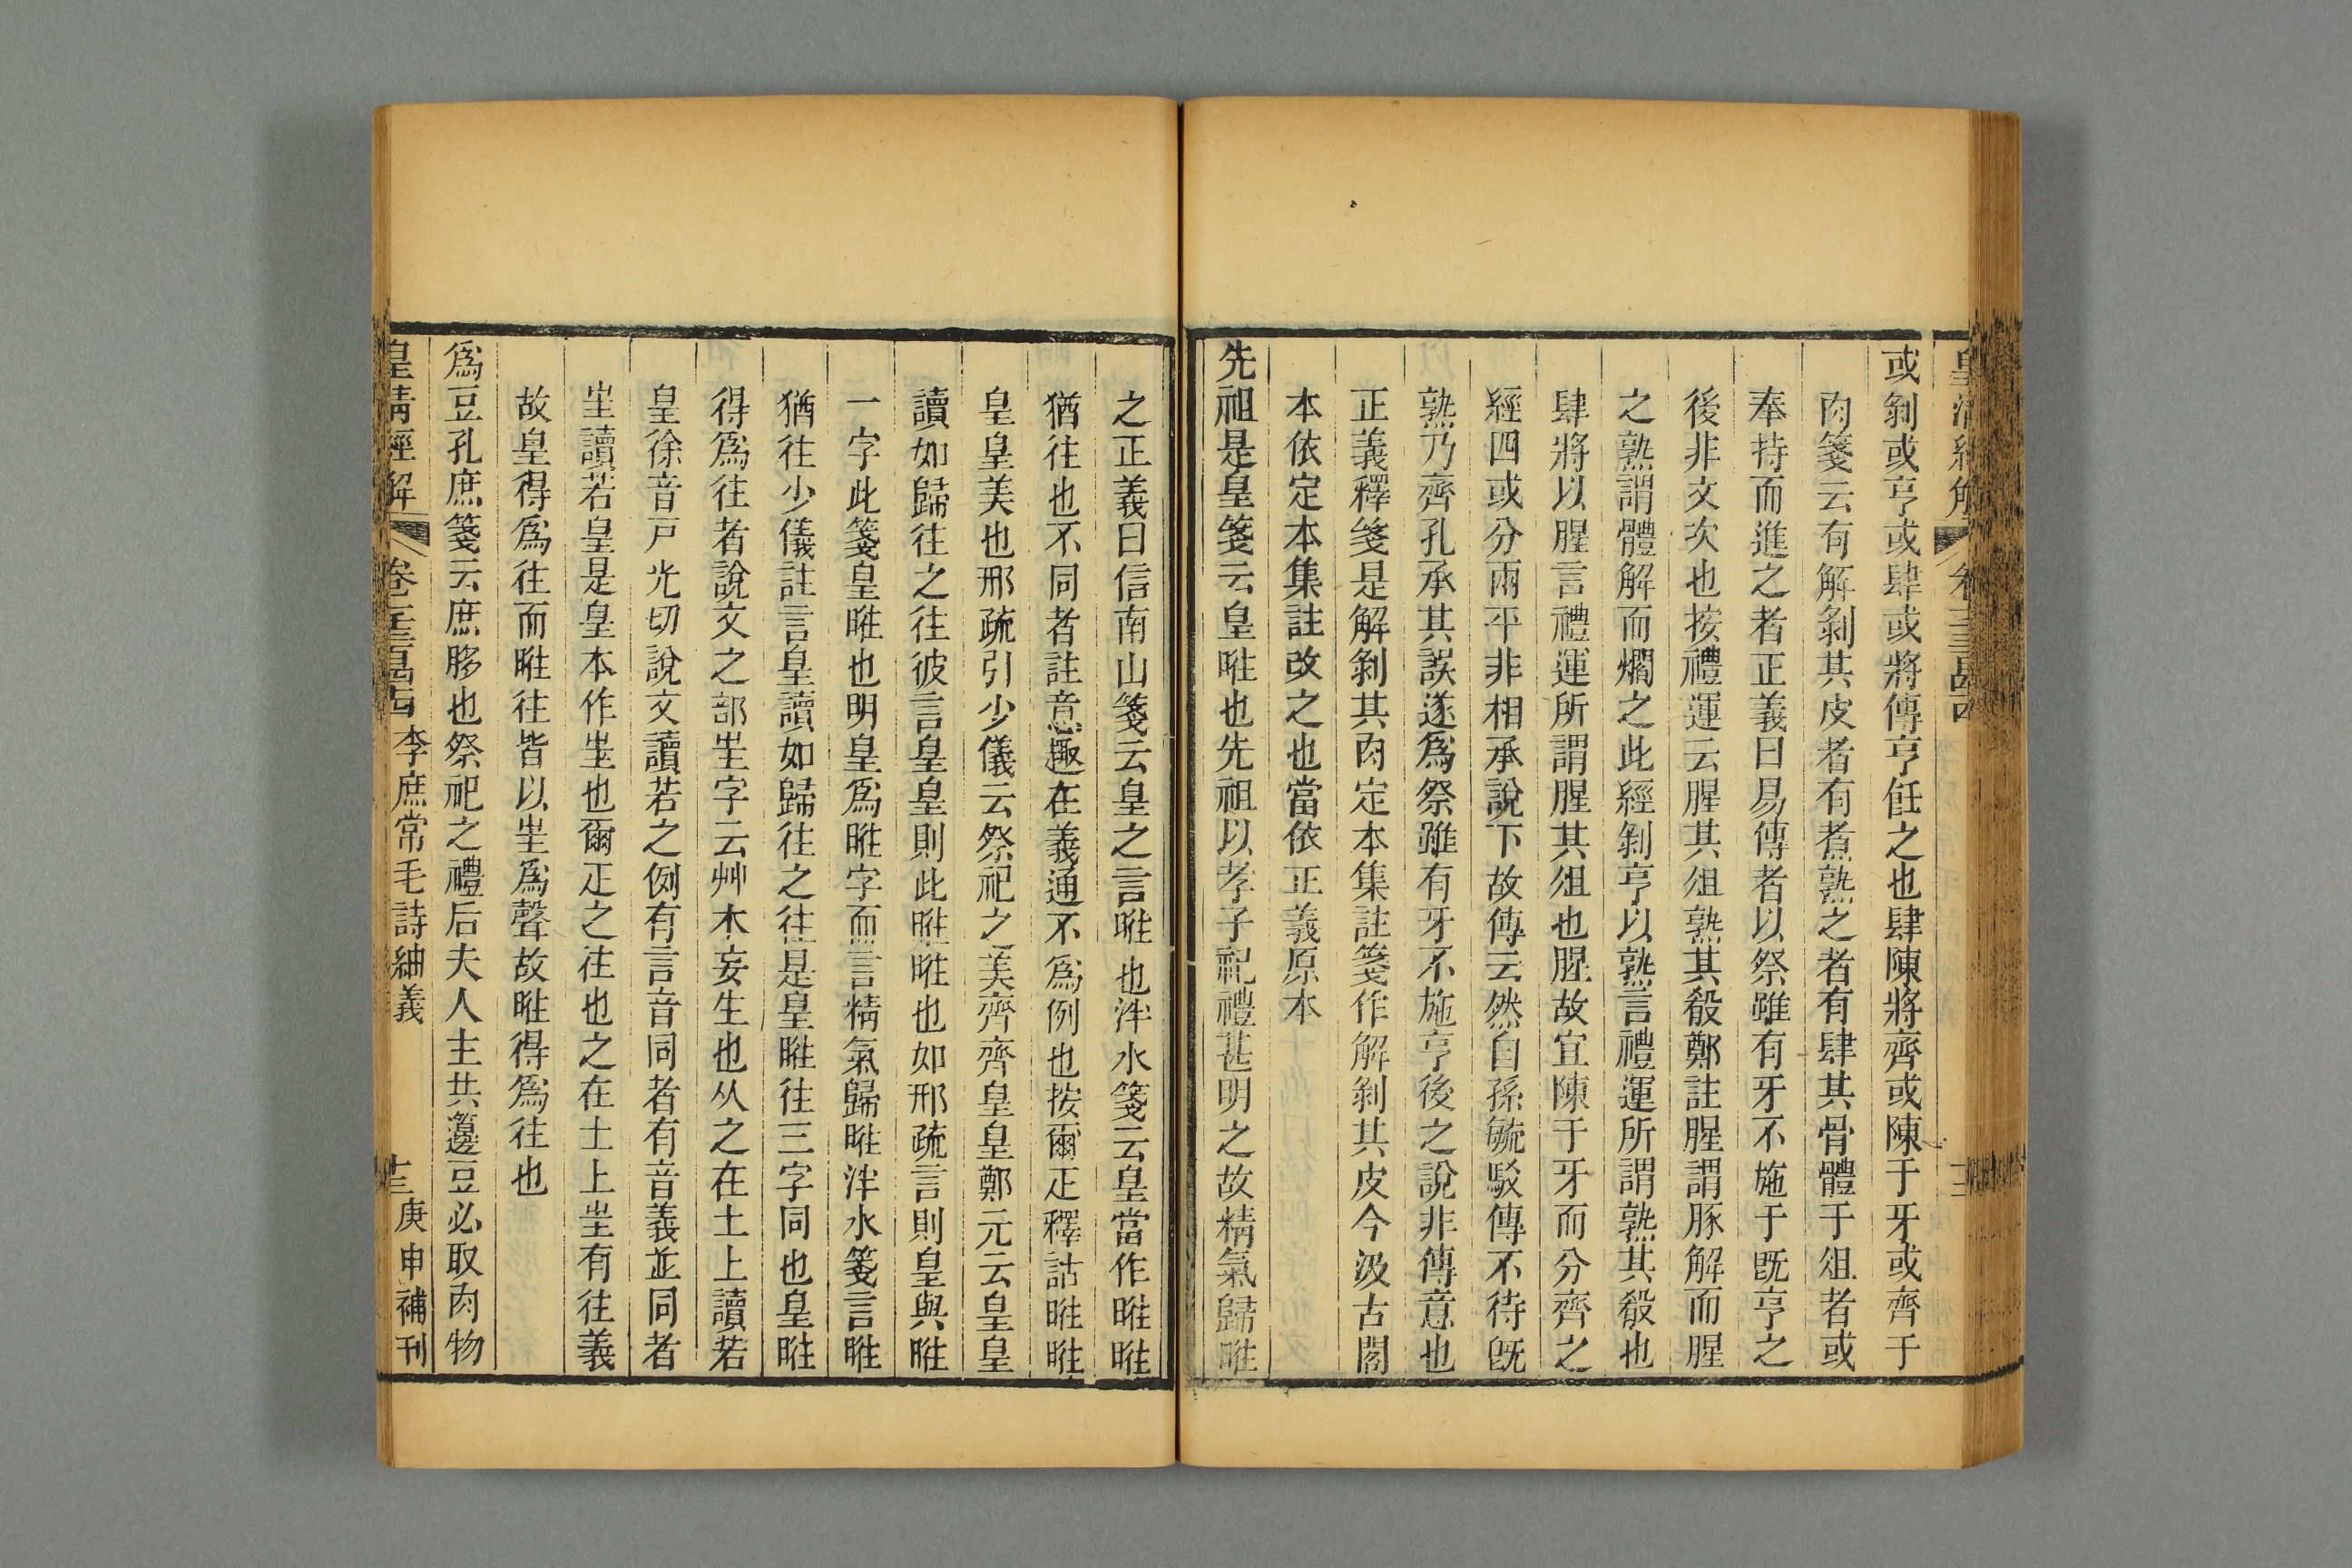 或剝或亨或肆或將傳亨飪之也肆陳將齊或陳于牙或齊于
肉箋云有解剝其皮者有煮熟之者有肆其骨體于俎者或
奉持而進之者正義曰易傳者以祭雖有牙不施于既亨之
後非文次也按禮運云腥其俎熟其殽鄭註腥謂豚解而腥
之熟謂體解而爓之此經剝亨以熟言禮運所謂熟其殽也
肆將以腥言禮運所謂腥其俎也腥故宜陳于牙而分齊之
經四或分兩平非相承說下故傳云然自孫毓駁傳不待既
熟乃齊孔承其誤遂爲祭雖有牙不施亨後之說非傳意也
正義釋箋是解剝其肉定本集註箋作解剝其皮今汲古閣
本依定本集註改之也當依正義原本
先祖是皇箋云皇暀也先祖以孝子祀禮甚明之故精氣歸暀
之正義曰信南山箋云皇之言暀也泮水箋云皇當作暀暀
猶往也不同者註意趣在義通不爲例也按爾疋釋詁暀暀
皇皇美也邢疏引少儀云祭祀之美齊齊皇皇鄭元云皇皇
讀如歸往之往彼言皇皇則此暀暀也如邢疏言則皇與暀
一字此箋皇暀也明皇爲暀字而言精氣歸暀泮水箋言暀
猶往少儀註言皇讀如歸往之往是皇暀往三字同也皇暀
得爲往者說文之部㞷字云艸木妄生也从之在土上讀若
皇徐音戸光切說文讀若之例有言音同者有音義並同者
㞷讀若皇是皇本作㞷也爾疋之往也之在土上㞷有往義
故皇得爲往而暀往皆以㞷爲聲故暀得爲往也
爲豆孔庶箋云庶䏧也祭祀之禮后夫人主共籩豆必取肉物
皇清經解 卷一千三百四十四 李庶常毛詩紬義 十三 庚申補刊